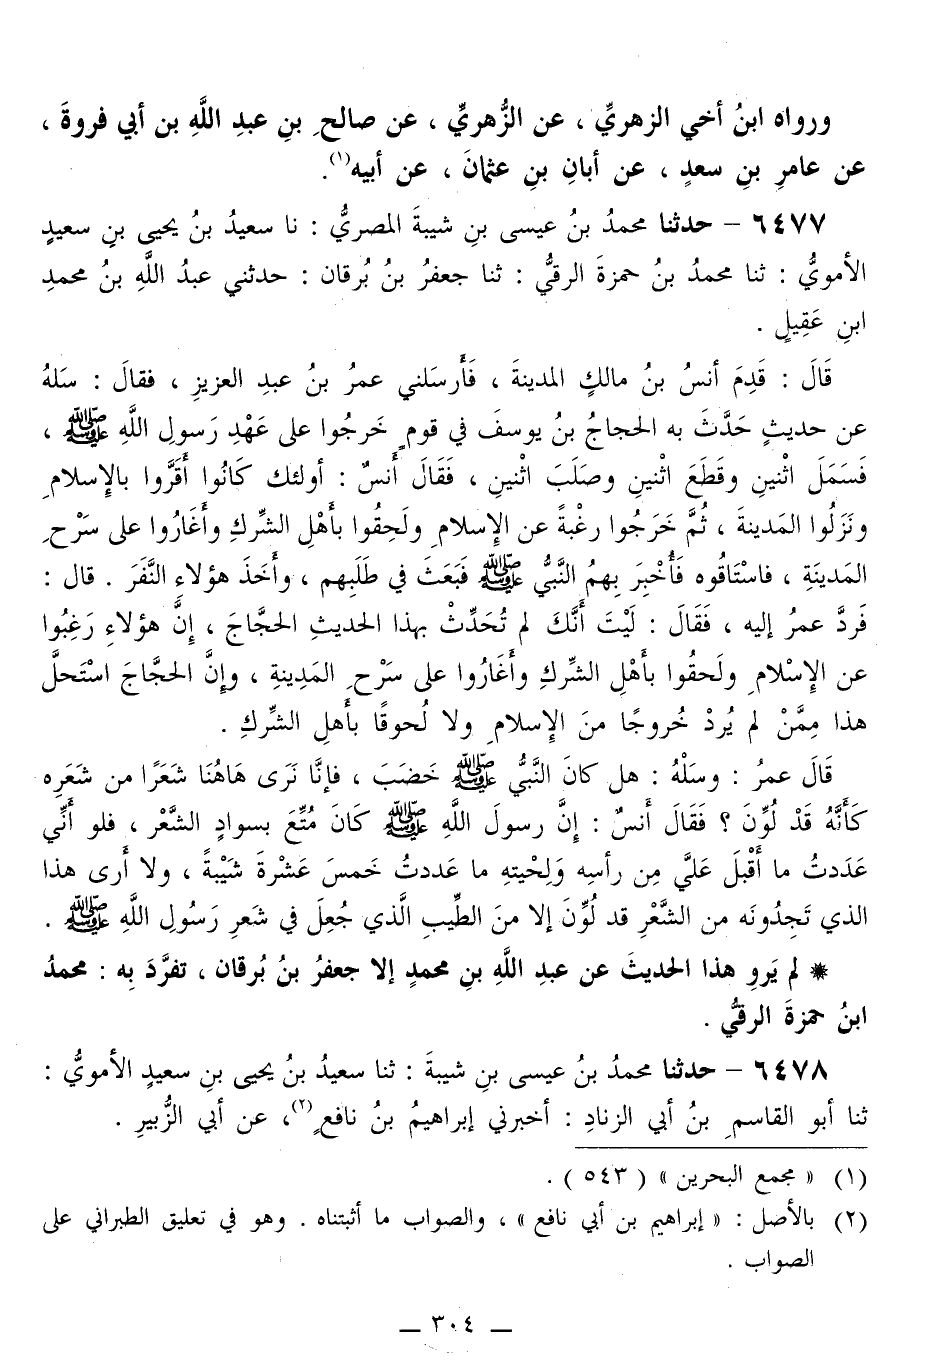 ورواه ابنُ أخي الزهريِّ ، عن الزُّهريِّ ، عن صالحِ بنِ عبدِ اللَّهِ بن أبي فروةَ ،
عن عامرِ بنِ سعدٍ ، عن أبانِ بنِ عثمانَ ، عن أبيه(١).
٦٤٧٧ – حدثنا محمدُ بنُ عيسى بنِ شيبةَ المصريُّ : نا سعيدُ بنُ يحيى بنِ سعيدٍ
الأمويُّ : ثنا محمدُ بنُ حمزةَ الرقيُّ : ثنا جعفرُ بنُ بُرقان : حدثني عبدُ اللَّهِ بنُ محمدِ
ابنِ عَقِيلٍ .
قَالَ : قَدِمَ أنسُ بنُ مالكٍ المدينةَ ، فَأَرسَلني عمرُ بنُ عبدِ العزيزِ ، فقالَ : سَلهُ
عن حديثٍ حَدَّثَ به الحجاجُ بنُ يوسفَ في قومٍ خَرجُوا على عَهْدِ رَسولِ اللَّهِ ﷺ ،
فَسَمَلَ اثْنينِ وقَطَعَ اثْنينِ وصلَبَ اثْنينِ ، فَقَالَ أَنسٌ : أولئك كَانُوا أَقَرَّوا بالإِسلامِ
ونَزَلُوا المَدينةَ ، ثُمَّ خَرَجُوا رغْبةً عن الإِسلامِ ولَحِقُوا بأَهْلِ الشِّركِ وأَغَارُوا على سَرْحِ
المَدينَةِ ، فاستَاقُوه فَأُخْبِرَ بِهِمُ النَّبيُّ ﷺ فَبَعَثَ في طَلَبِهم ، وأَخَذَ هؤلاءِ النَّفَرَ . قال :
فَردَّ عمرُ إليه ، فَقَالَ : لَيْتَ أَنَّكَ لم تُحَدِّثْ بهذا الحَديثِ الحَجَّاجَ ، إنَّ هؤلاءِ رَغِبُوا
عن الإِسْلامِ ولَحقُوا بأَهْلِ الشِّركِ وأَغَارُوا على سَرْحِ المَدِينةِ ، وإِنَّ الحَجَّاجَ استَحلَّ
هذا مِمَّنْ لم يُرِدْ خُروجًا منَ الإِسلامِ ولا لُحوقًا بأَهلِ الشِّركِ .
قَالَ عمرُ : وسَلْهُ : هل كانَ النَّبيُّ ﷺ خَضَبَ ، فإنَّا نَرَى هَاهُنَا شَعَرًا من شَعَرِه
كَأَنَّهُ قَدْ لُوِّنَ ؟ فَقَالَ أنسٌ : إنَّ رسولَ اللَّهِ ﷺ كَانَ مُتِّعَ بسوادِ الشَّعْر ، فلو أنِّي
عَدَدتُ ما أَقْبلَ عَليَّ مِن رأسِه وَلِحْيتهِ ما عَددتُ خَمسَ عَشْرةَ شَيْبةً ، ولا أَرى هذا
الذي تَجِدُونَه من الشَّعْرِ قد لُوِّنَ إلا منَ الطِّيبِ الَّذي جُعِلَ في شَعرِ رَسُولِ اللَّهِ ﷺ .
* لم يَروِ هذا الحديثَ عن عبدِ اللَّهِ بنِ محمدٍ إلا جعفرُ بنُ بُرقان ، تفرَّدَ به : محمدُ
ابنُ حمزةَ الرقيُّ .
٦٤٧٨ – حدثنا محمدُ بنُ عيسى بنِ شيبةَ : ثنا سعيدُ بنُ يحيى بنِ سعيدٍ الأمويُّ :
ثنا أبو القاسمِ بنُ أبي الزنادِ : أخبرني إبراهيمُ بنُ نافعٍ(٢)، عن أبي الزُّبيرِ .
(١) « مجمع البحرين » ( ٥٤٣ ) .
(٢) بالأصل : « إبراهيم بن أبي نافع » ، والصواب ما أثبتناه . وهو في تعليق الطبراني على
الصواب .
— ٣٠٤ —